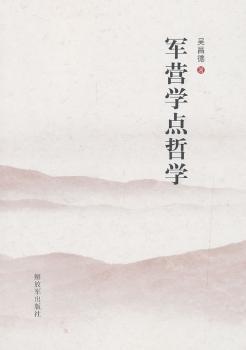 军营学点哲学
吴昌德
著
解放军出版社